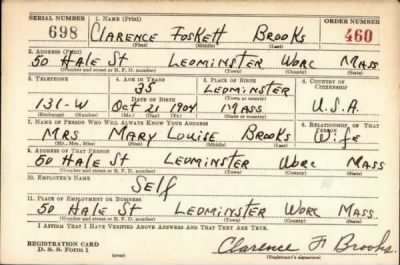 SERIAL NUMBER 1. NAME (Print) ORDER NUMBER
698 CLARENCE FOSKETT BROOKS 460
(First) (Middle) (Last)
2. ADDRESS (Print)
50 HALE ST LEOMINSTER WORC MASS
(Number and street or R. F. D. number) (Town) (County) (State)
3. TELEPHONE 4. AGE IN YEARS 5. PLACE OF BIRTH 6. COUNTRY OF CITIZENSHIP
35 LEOMINSTER
DATE OF BIRTH (Town or county)
131-W OCT 21 1904 MASS U.S.A
(Exchange) (Number) (Mo.) (Day) (Yr.) (State or country)
7. NAME OF PERSON WHO WILL ALWAYS KNOW YOUR ADDRESS 8. RELATIONSHIP OF THAT PERSON
MRS MARY LOUISE BROOKS WIFE
(Mr., Mrs., Miss) (First) (Middle) (Last)
9. ADDRESS OF THAT PERSON
50 HALE ST LEOMINSTER WORC MASS
(Number and street or R. F. D. number) (Town) (County) (State)
10. EMPLOYER'S NAME
SELF
11. PLACE OF EMPLOYMENT OR BUSINESS
50 HALE ST LEOMINSTER WORC MASS.
(Number and street or R. F. D. number) (Town) (County) (State)
I AFFIRM THAT I HAVE VERIFIED ABOVE ANSWERS AND THAT THEY ARE TRUE.
REGISTRATION CARD
D. S. S. Form 1 (over) Clarence F Brooks
(Registrant's signature)